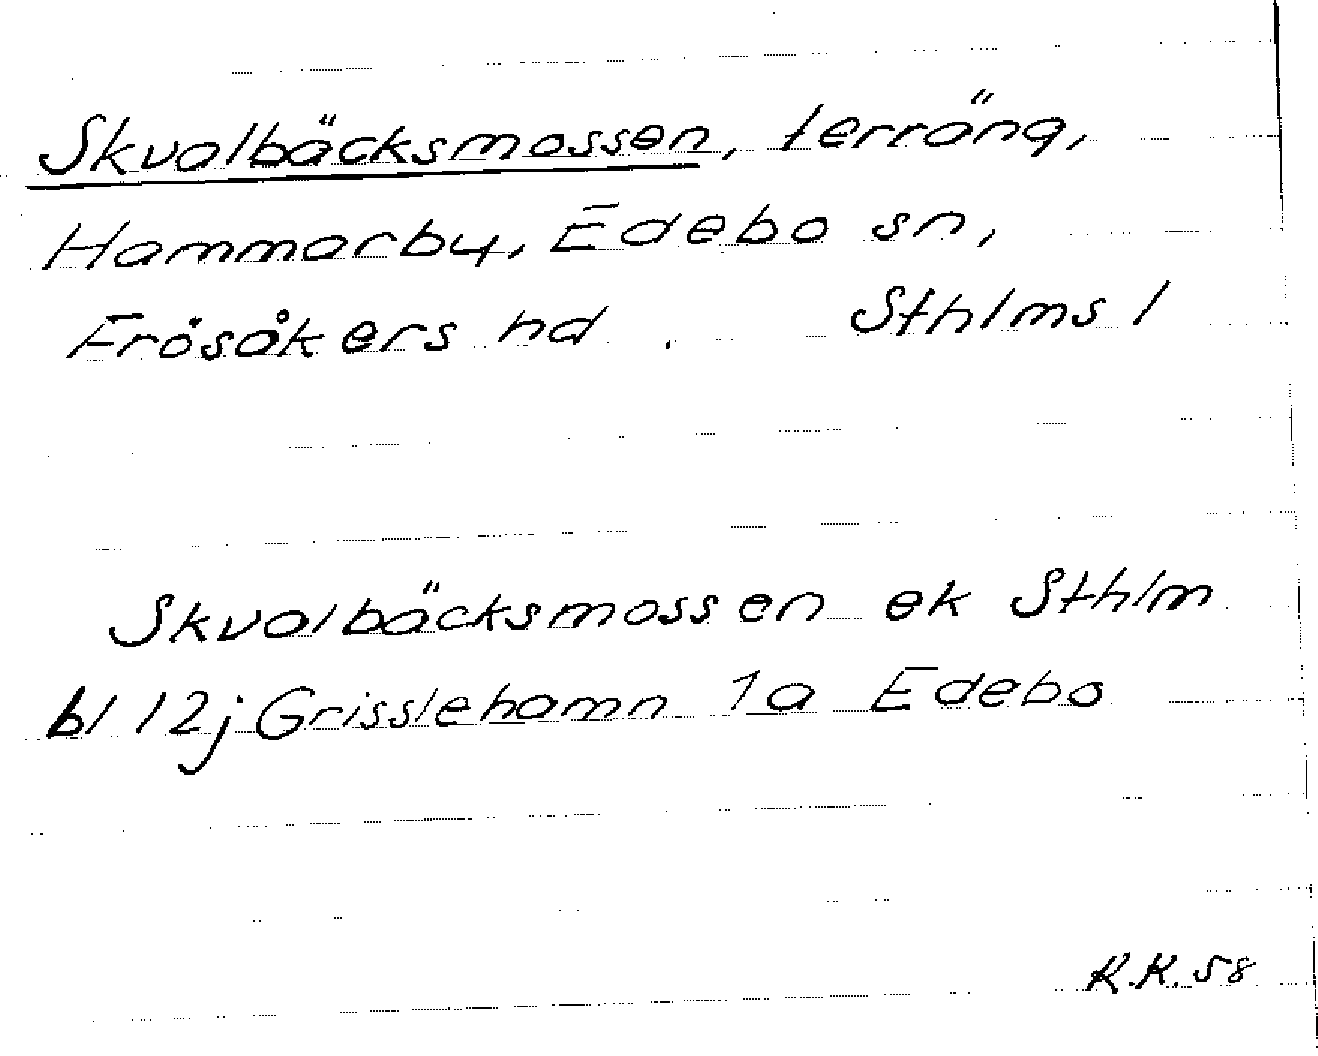 Skvalbäcksmossen, terräng,
Hammarby, Edebo sn,
Frösåkers hd. Sthlms l
Skvalbäcksmossen ek Sthlm
bl 12j Grisslehamn 1a Edebo
K.K. 58